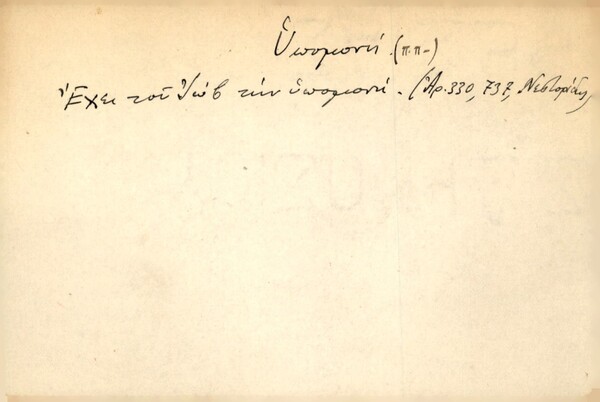 Ὑπομονή (π.π-)
Ἔχει τοῦ Ἰώβ τήν ὑπομονή. (Ἀρ. 330, 737, Νεστορίδης